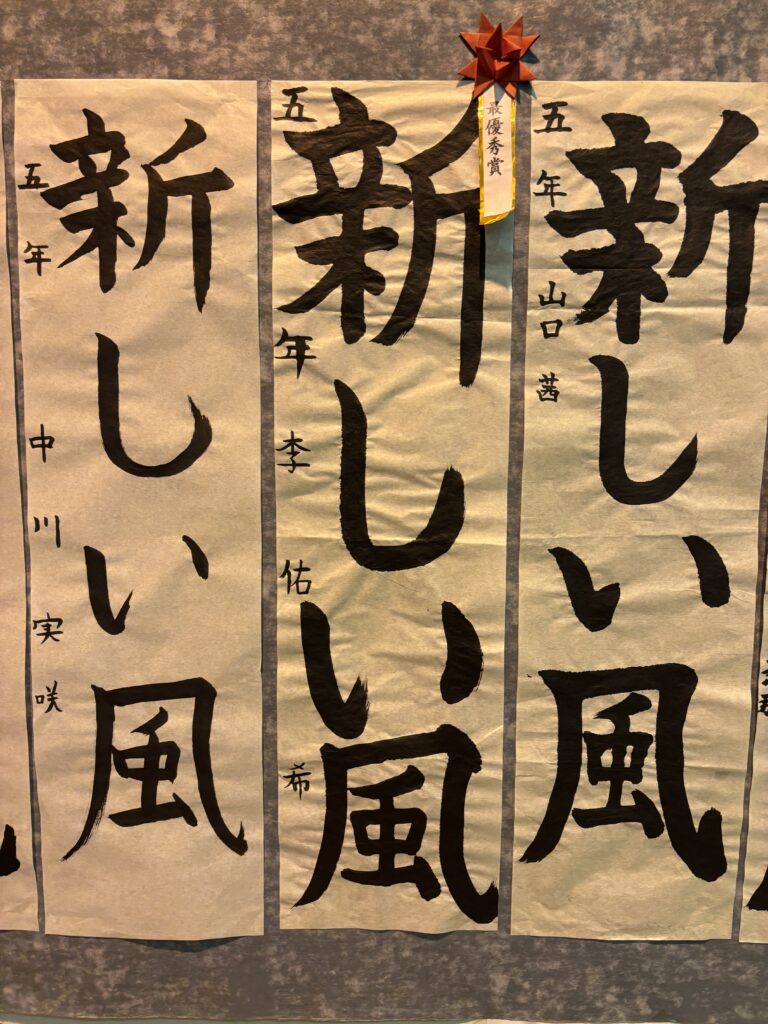 新しい風
五年 中川実咲
最優秀賞
新しい風
五年 李佑希
新しい風
五年 山口茜